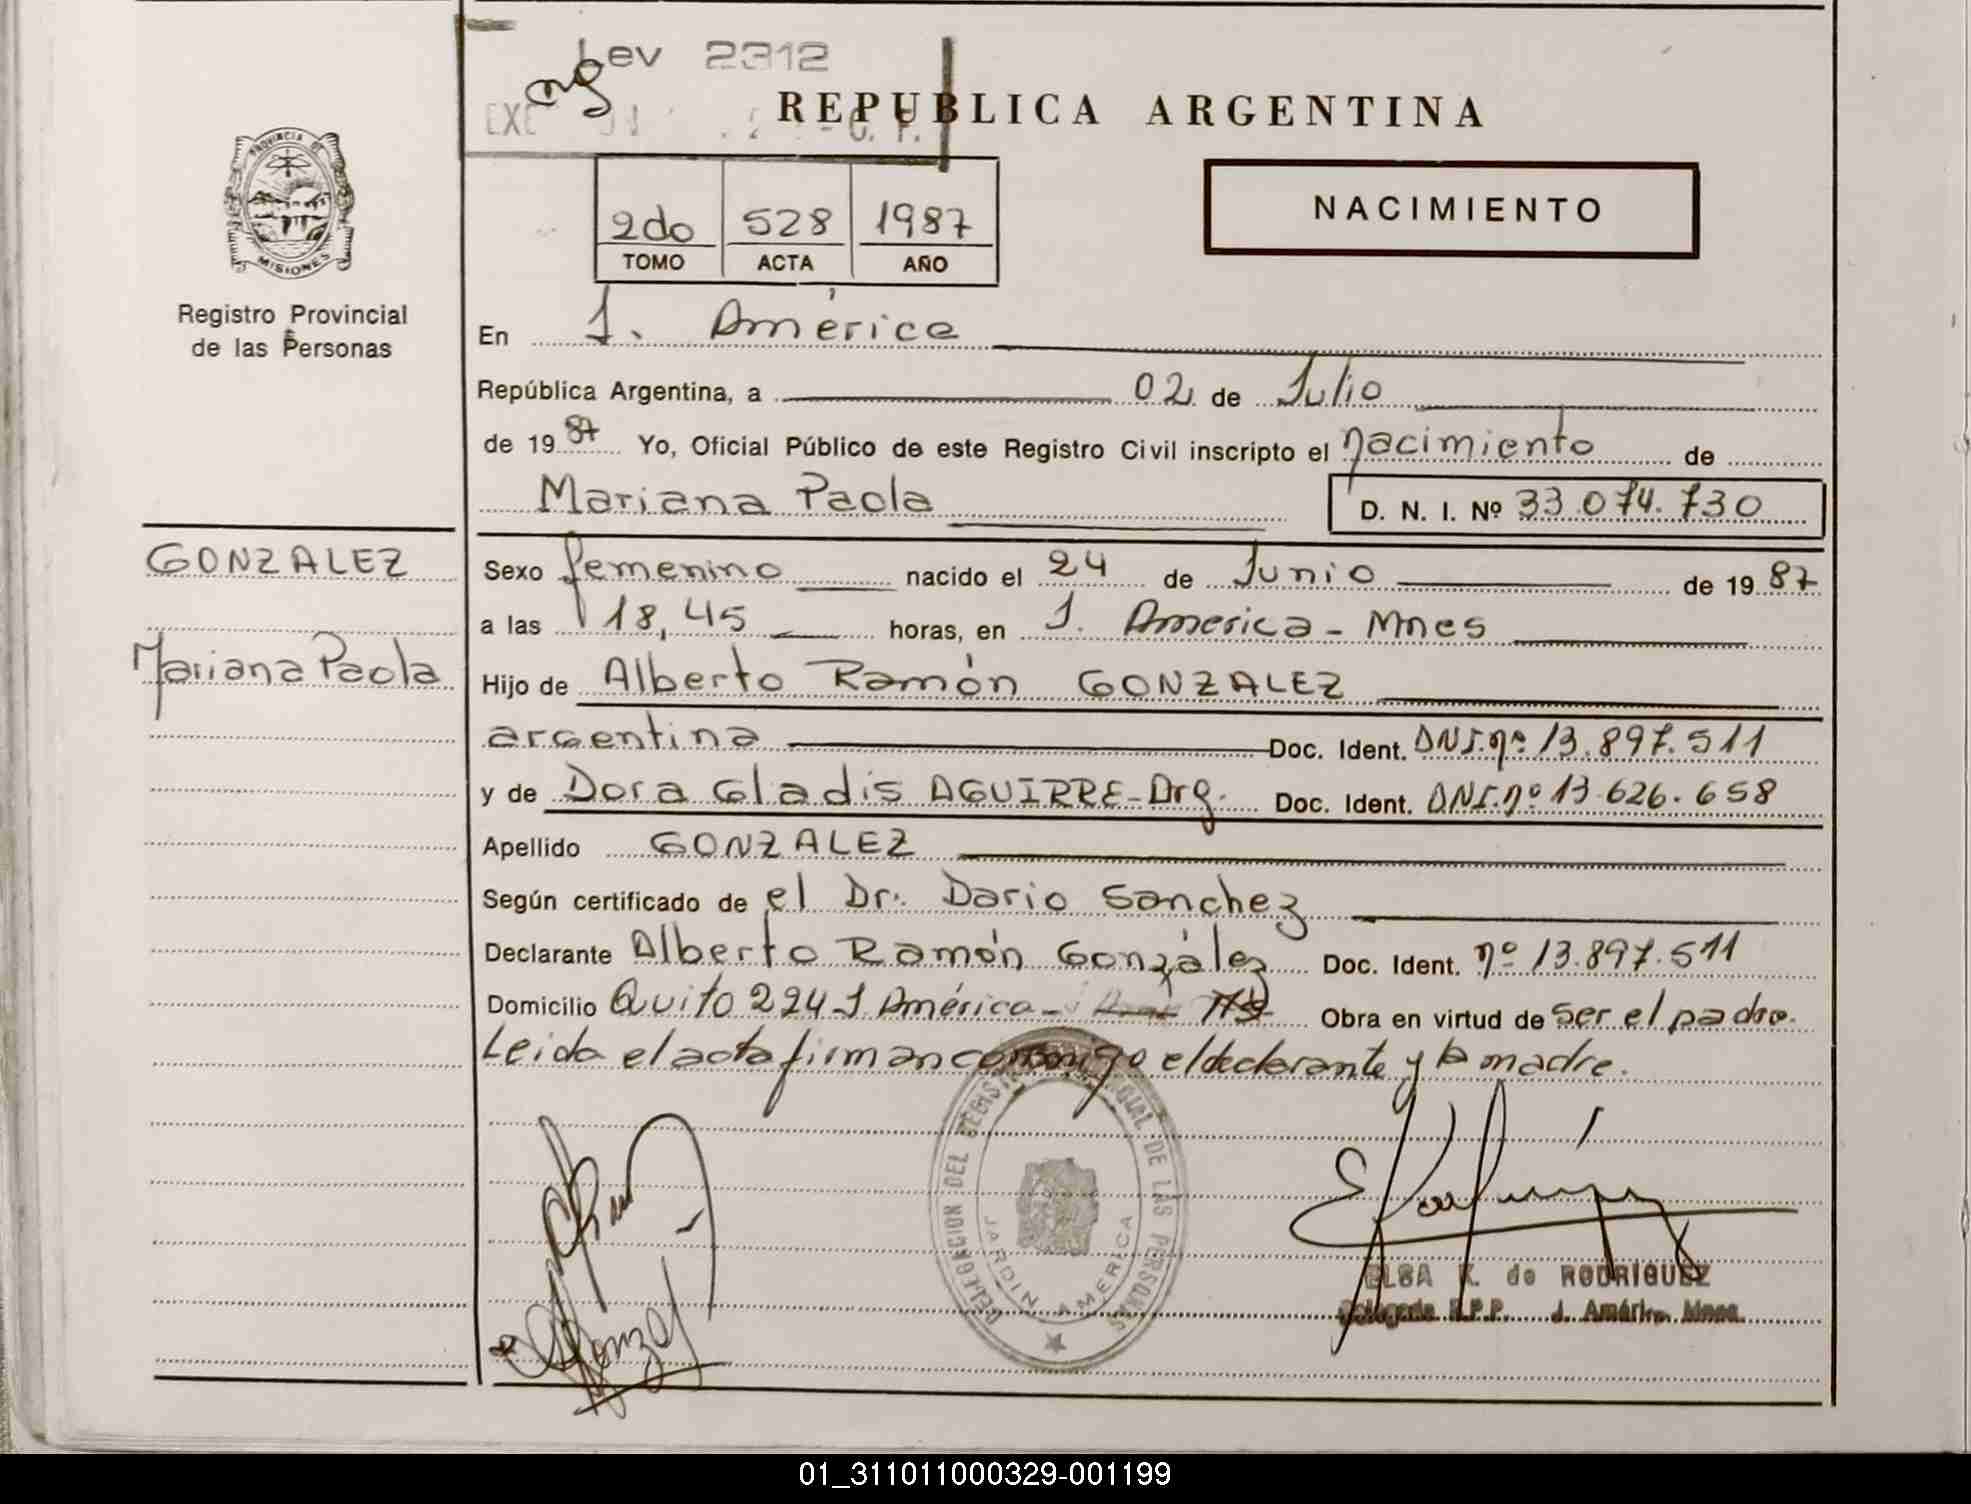 Ley 2312
REPUBLICA ARGENTINA
PROVINCIA DE
MISIONES
Registro Provincial
de las Personas
2do 528 1987
TOMO ACTA AÑO
NACIMIENTO
En J. América
República Argentina, a 02 de Julio
de 1987 Yo, Oficial Público de este Registro Civil inscripto el nacimiento de
Mariana Paola D. N. I. Nº 33.074.730
GONZALEZ
Mariana Paola
Sexo femenino nacido el 24 de Junio de 1987
a las 18,45 horas, en J. America - Mnes
Hijo de Alberto Ramón GONZALEZ
argentina Doc. Ident. DNI. nº 13.897.511
y de Dora Gladis AGUIRRE - Arg. Doc. Ident. DNI. nº 13.626.658
Apellido GONZALEZ
Según certificado de el Dr. Dario Sanchez
Declarante Alberto Ramón González Doc. Ident. nº 13.897.511
Domicilio Quito 224 J América - Obra en virtud de ser el padre.
Leida el acta firman conmigo el declarante y la madre.
DELEGACION DEL REGISTRO PROVINCIAL DE LAS PERSONAS
JARDIN AMERICA
ELSA K. de RODRIGUEZ
Delegada R.P.P. J. América Mnes.
01_311011000329-001199